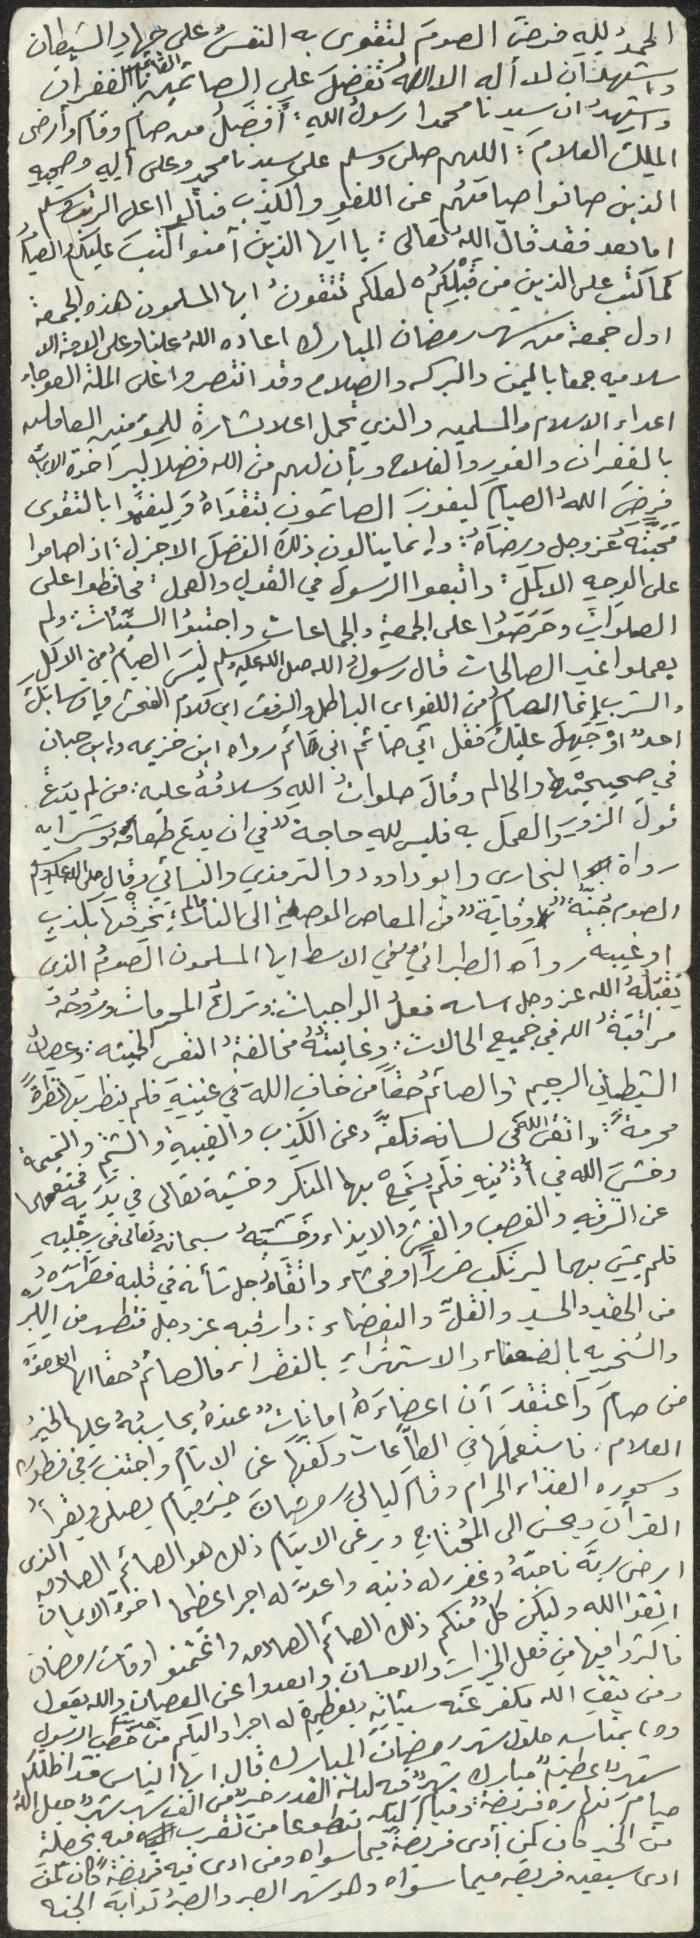 الحمد لله فرض الصوم لتقوى به النفس على جهاد الشيطان
وأشهد أن لا أله الا الله تفضل على الصائمين القائمين بالغفران
واشهد ان سيدنا محمدا رسول الله : أفضل من صام وقام وأرضى
الملك العلام : اللهم صلى وسلم على سيدنا محمد وعلى آله وصحبه
الذين صانوا صيامهم عن اللغو والكذب
اما بعد فقد قال الله تعالى : يا ايها الذين آمنوا كتب عليكم الصيام
كما كتب على الذين من قبلكم لعلكم تتقون ايها المسلمون هذه الجمعة
اول جمعة من شهر رمضان المبارك اعاده الله علينا وعلى الامة الا
سلاميه جمعا باليمن والبركه والصلاح وقد انتصروا على الملة العوجاء
اعداء الاسلام والمسلمين والذي يحمل اعلا بشارة للمؤمنين العاملين
بالغفران والفوز والفلاح وبأن لهم من الله فضلا كبيرا اخوة الايمان
فرض الله الصيام ليفوز الصائمون بتقواه وليغنموا بالتقوى
محبته عز وجل ورضاه : وانما ينالون ذلك الفضل الاجزل : اذا صاموا
على الوجه الاكمل : واتبعوا الرسول في القول والعمل : محافظوا على
الصلوات وحرصوا على الجمعة والجماعات واجتنبوا السيئات : ولم
يعملوا غير الصالحات قال رسول الله صلى الله عليه وسلم ليس الصيام من الاكل
والشرب إنما الصيام من اللغو اي الباطل والرفث اي كلام الفحش فان سابك
احد او جهل عليك فقل اني صائم اني صائم رواه ابن خزيمه وابن حبان
في صحيحيهما والحاكم وقال صلوات الله وسلامه عليه : من لم يدع
قول الزور والعمل به فليس لله حاجة في ان يدع طعامه وشرابه
رواه البخارى وابو داوود والترمذي والنسائي وقال صلى الله عليه وسلم
الصوم جنة وقاية من المعاصي الموصلة الى النار مالم يخرقها بكذب
او غيبة رواه الطبراني في الاوسط ايها المسلمون الصوم الذي
يقبله الله عز وجل اساسه فعل الواجبات : وترك المحرمات وروحه
مراقبة الله في جميع الحالات : وغايته مخالفة النفس الخبيثه : وعصيان
الشيطان الرجيم : والصائم حقا من خاف الله في عينيه فلم ينظر بها نظرة
محرمة : واتقى الله في لسانه فكفه عن الكذب والغيبة والشتم والنميمة
وخشي الله في أذنيه فلم يسمع بها المنكر وخشية تعالى في يديه فمنعهما
عن السرقه والغصب والغش والايذاء وخشيته سبحانه وتعالى في رجليه
فلم يمشي بهما ليرتكب ضررا او فحشاء واتقاه جل شأنه في قلبه فطهره
من الحقد والحسد والغل والبغضاء : وراقبه عز وجل فتطهر من الكبر
والسخريه بالضعفاء والاستهزاء بالفقراء فالصائم حقا ايها الاخوة
من صام واعتقد أن اعضاءه امانات عنده يحاسبه عليها الخبير
العلام : فاستعملها في الطاعات وكفها عن الاثام واجتنب في فطوره
وسحوره الغذاء الحرام وقام ليالي رمضان خير قيام يصلي ويقرأ
القرآن ويحسن الى المحتاج ويرعى الايتام ذلك هو الصائم الصادق الذى
ارضى ربه فأحبه وغفر له ذنبه واعد له اجرا عظيما اخوة الايمان
اتقوا الله وليكن كل منكم ذلك الصائم الصادق واغتنموا اوقات رمضان
فاكثروا فيها من فعل الخيرات والاحسان وابعدوا عن العصيان والله يقول
ومن يتق الله يكفر عنه سيئاته ويعظم له اجرا واليكم من خطب الرسول
بمناسبه حلول شهر رمضان المبارك قال ايها الناس قد اظلكم
شهر عظيم مبارك شهر فيه ليلة القدر خير من الف شهر شهر جعل الله
صيام نهاره فريضة وقيام ليله تطوعا من تقرب فيه بخصلة
من الخير كان كمن أدى فريضة فيما سواه ومن ادى فيه فريضة كان كمن
ادى سبعين فريضه فيما سواه وهو شهر الصبر والصبر ثوابه الجنه